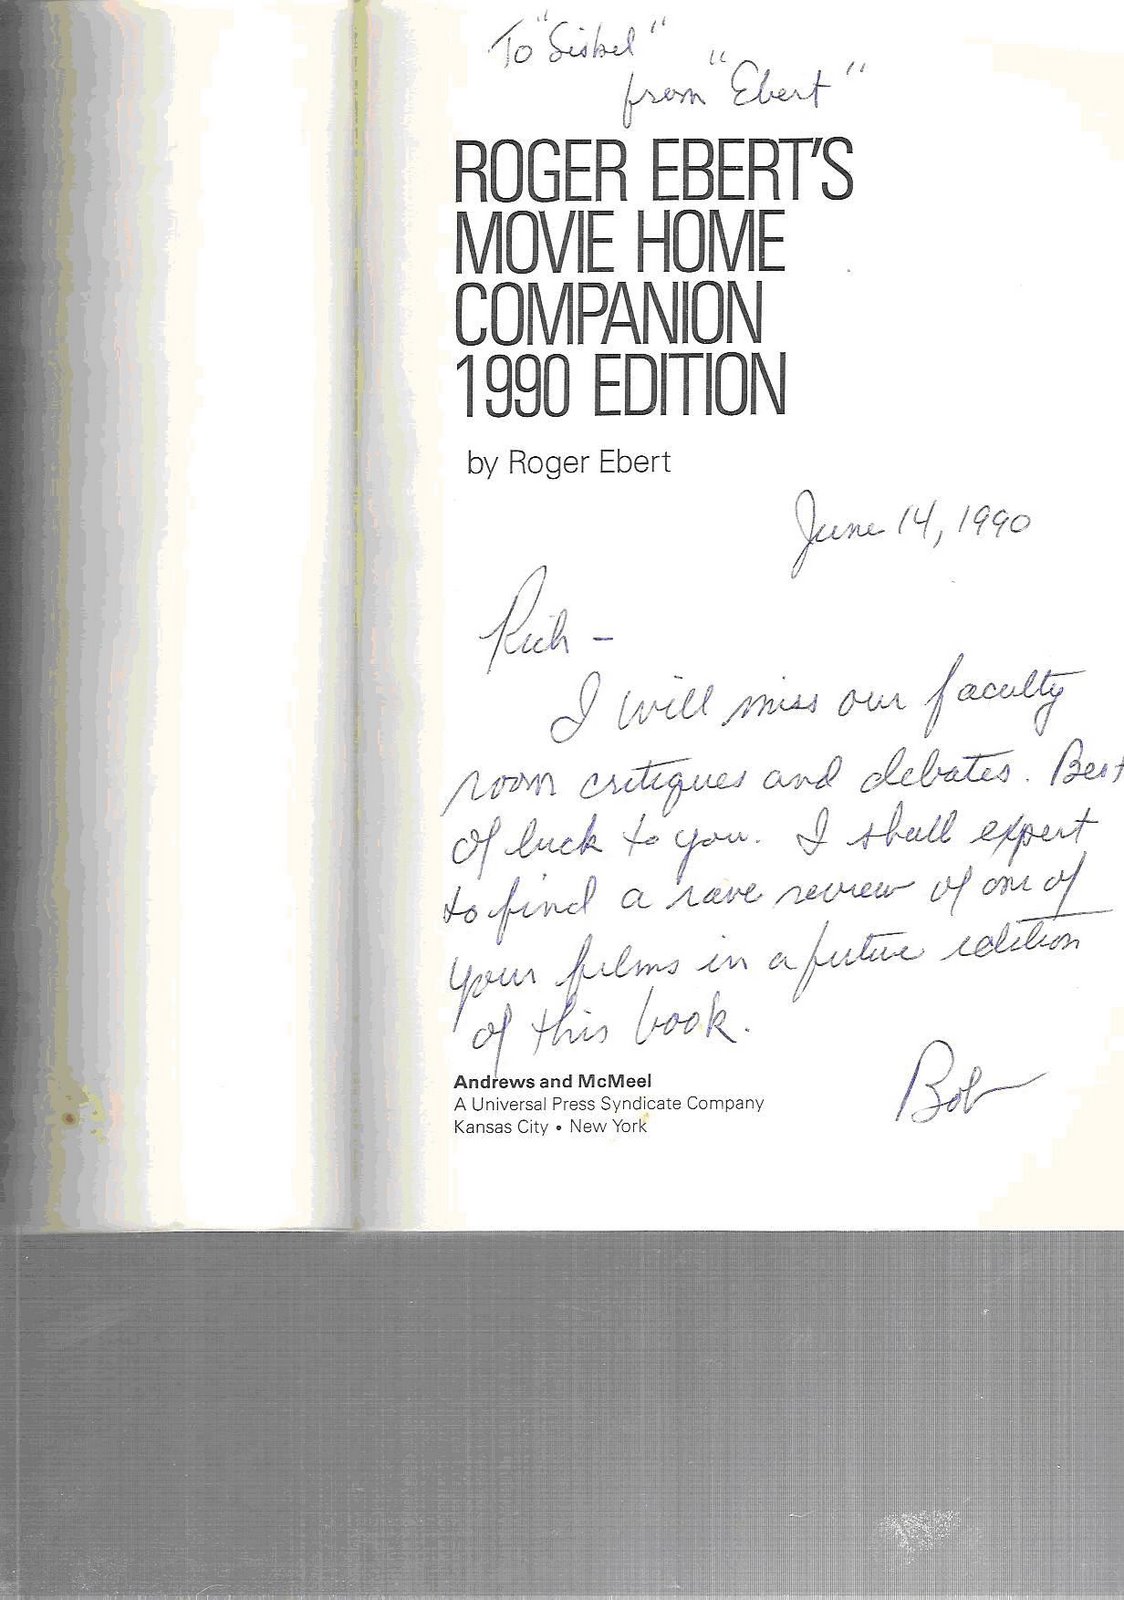 To "Siskel"
from "Ebert"
ROGER EBERT'S
MOVIE HOME
COMPANION
1990 EDITION
by Roger Ebert
June 14, 1990
Rich –
I will miss our faculty
room critiques and debates. Best
of luck to you. I shall expect
to find a rave review of one of
your films in a future edition
of this book.
Bob
Andrews and McMeel
A Universal Press Syndicate Company
Kansas City • New York